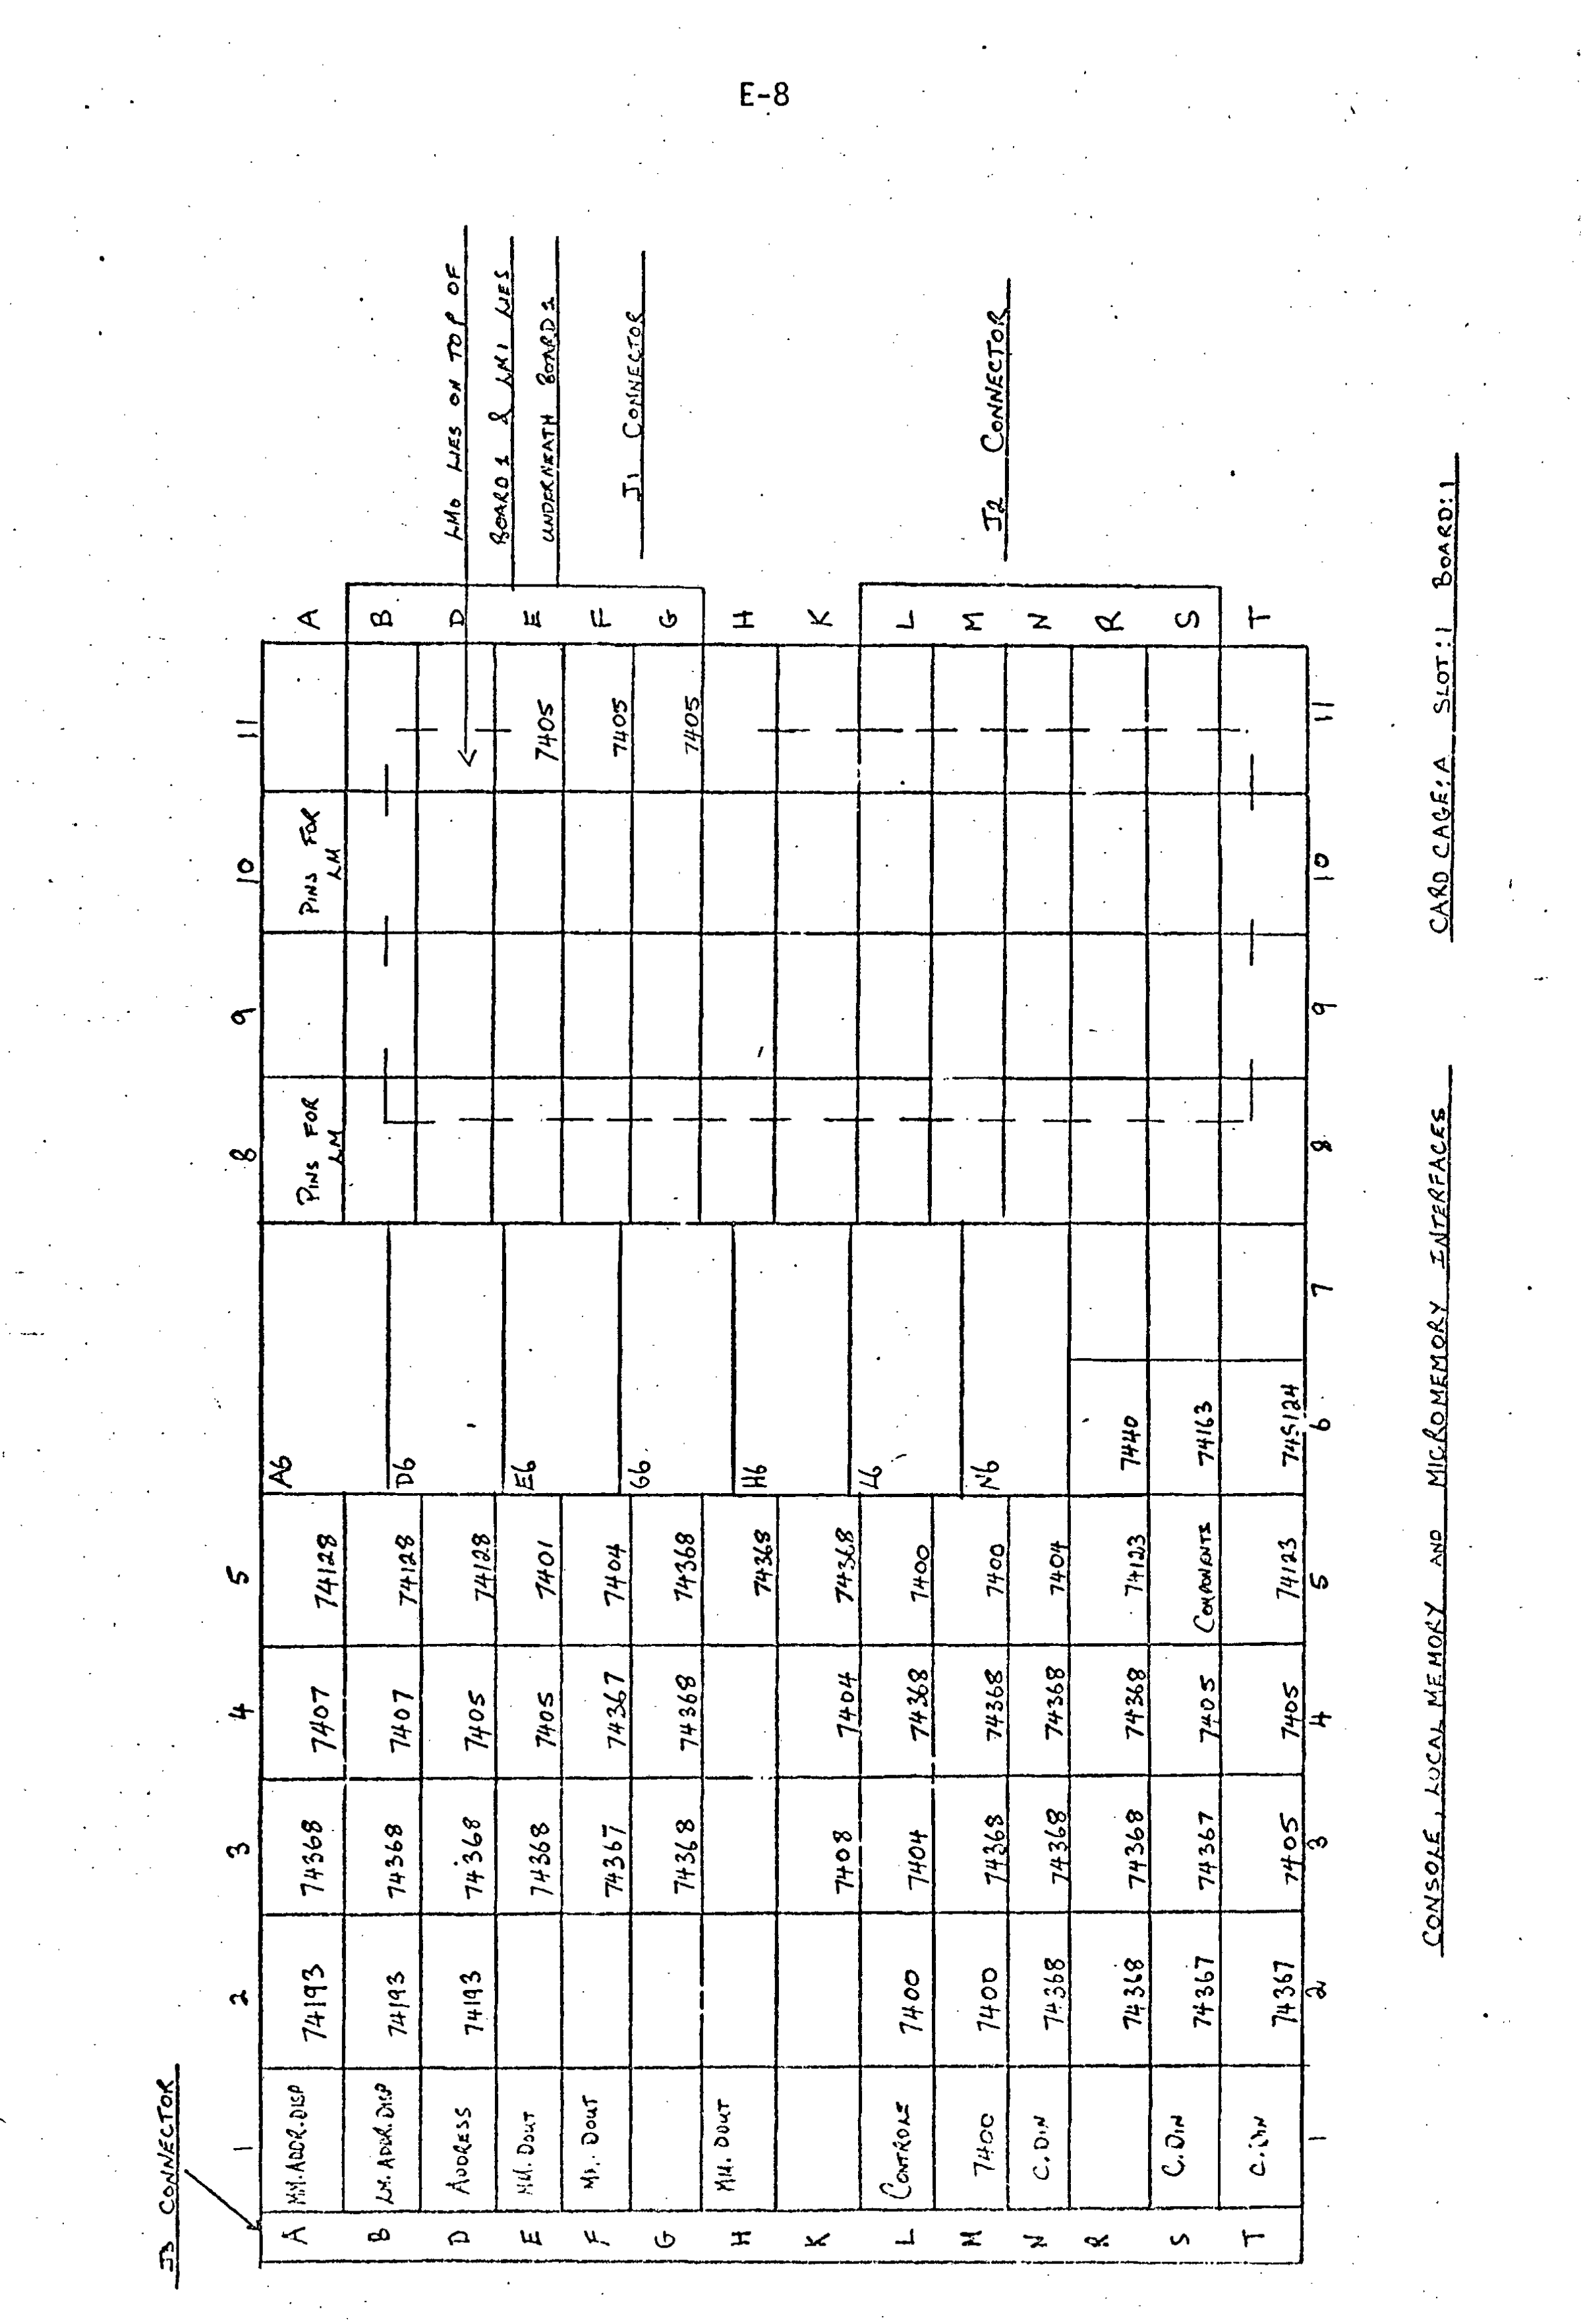 E-8
J3 CONNECTOR
1 2 3 4 5 8 9 10 11
A MM.ADDR.DISP 74193 74368 7407 74128 A6 PINS FOR LM PINS FOR LM A
B LM.ADDR.DISP 74193 74368 7407 74128 B
D ADDRESS 74193 74368 7405 74128 D6 D
E MM.DOUT 74368 7405 7401 E6 7405 E
F DOUT 74367 74367 7404 7405 F
G 74368 74368 74368 G6 7405 G
H MM.DOUT 74368 H6 H
K 7408 7404 74368 K
L CONTROLE 7400 7404 74368 7400 L6 L
M 7400 7400 74368 74368 7400 M
N C.DIN 74368 74368 74368 7404 N6 N
R 74368 74368 74368 74123 7440 R
S C.DIN 74367 74367 7405 COMPONENTS 74163 S
T C.DIN 74367 7405 7405 74123 74S124 T
1 2 3 4 5 6 7 8 9 10 11
LM0 LIES ON TOP OF
BOARD1 & LM1 LIES
UNDERNEATH BOARD1
J1 CONNECTOR
J2 CONNECTOR
CONSOLE, LOCAL MEMORY AND MICROMEMORY INTERFACES
CARD CAGE: A SLOT: 1 BOARD: 1